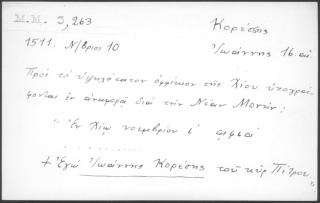 M.M. 3,263
Κορέσσης
Ἰωάννης 16 αἰ.
1511. Ν/βρίος 10
Πρὸς τὸ ὑψηλότατον ὀφφίκιον τῆς Χίου ὑπογράφονται ἐν ἀναφορᾷ διὰ τὴν Νέαν Μονήν:
"Ἐν Χίῳ νοεμβρίου ι΄ αφια΄
..........
+ Ἐγὼ Ἰωάννης Κορέσης τοῦ κὺρ Πέτρου"